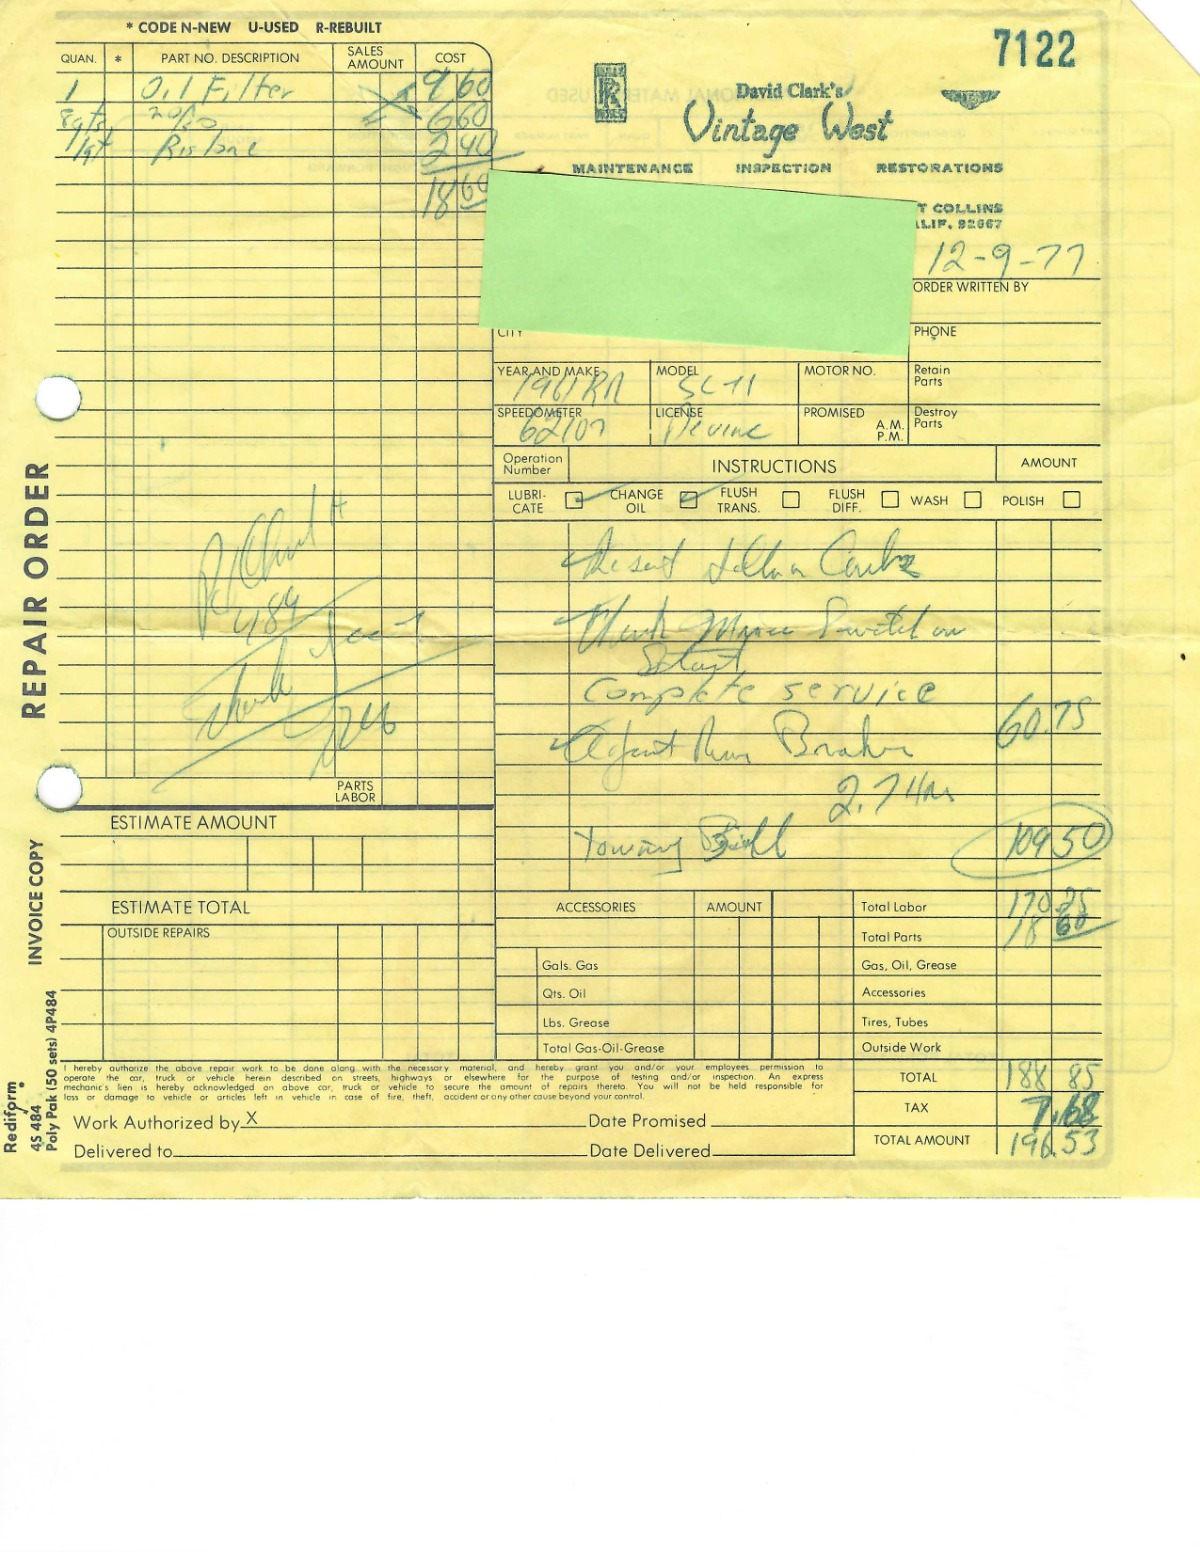 * CODE N-NEW U-USED R-REBUILT
7122
QUAN. * PART NO. DESCRIPTION SALES AMOUNT COST
1 Oil Filter 9 60
8qts 20/50 6 60
1qt Rislone 2 40
18 60
David Clark's
Vintage West
MAINTENANCE INSPECTION RESTORATIONS
T COLLINS
ALIF. 92667
12-9-77
ORDER WRITTEN BY
CITY
PHONE
YEAR AND MAKE 1961 RR
MODEL
MOTOR NO.
Retain Parts
SPEEDOMETER 62107
LICENSE
PROMISED A.M. P.M.
Destroy Parts
Operation Number INSTRUCTIONS AMOUNT
LUBRI-CATE CHANGE OIL FLUSH TRANS. FLUSH DIFF. WASH POLISH
Check Switch on
Start
Complete service
60.75
Adjust Brakes
2.7 Hrs
Towing Bill 109 50
PARTS
LABOR
ESTIMATE AMOUNT
ESTIMATE TOTAL
OUTSIDE REPAIRS
ACCESSORIES AMOUNT
Gals. Gas
Qts. Oil
Lbs. Grease
Total Gas-Oil-Grease
Total Labor 170.25
Total Parts 18 60
Gas, Oil, Grease
Accessories
Tires, Tubes
Outside Work
TOTAL 188 85
TAX 7.68
TOTAL AMOUNT 196.53
I hereby authorize the above repair work to be done along with the necessary material, and hereby grant you and/or your employees permission to
operate the car, truck or vehicle herein described on streets, highways or elsewhere for the purpose of testing and/or inspection. An express
mechanic's lien is hereby acknowledged on above car, truck or vehicle to secure the amount of repairs thereto. You will not be held responsible for
loss or damage to vehicle or articles left in vehicle in case of fire, theft, accident or any other cause beyond your control.
Work Authorized by X Date Promised
Delivered to Date Delivered
REPAIR ORDER
INVOICE COPY
Rediform
4S 484
Poly Pak (50 sets) 4P484